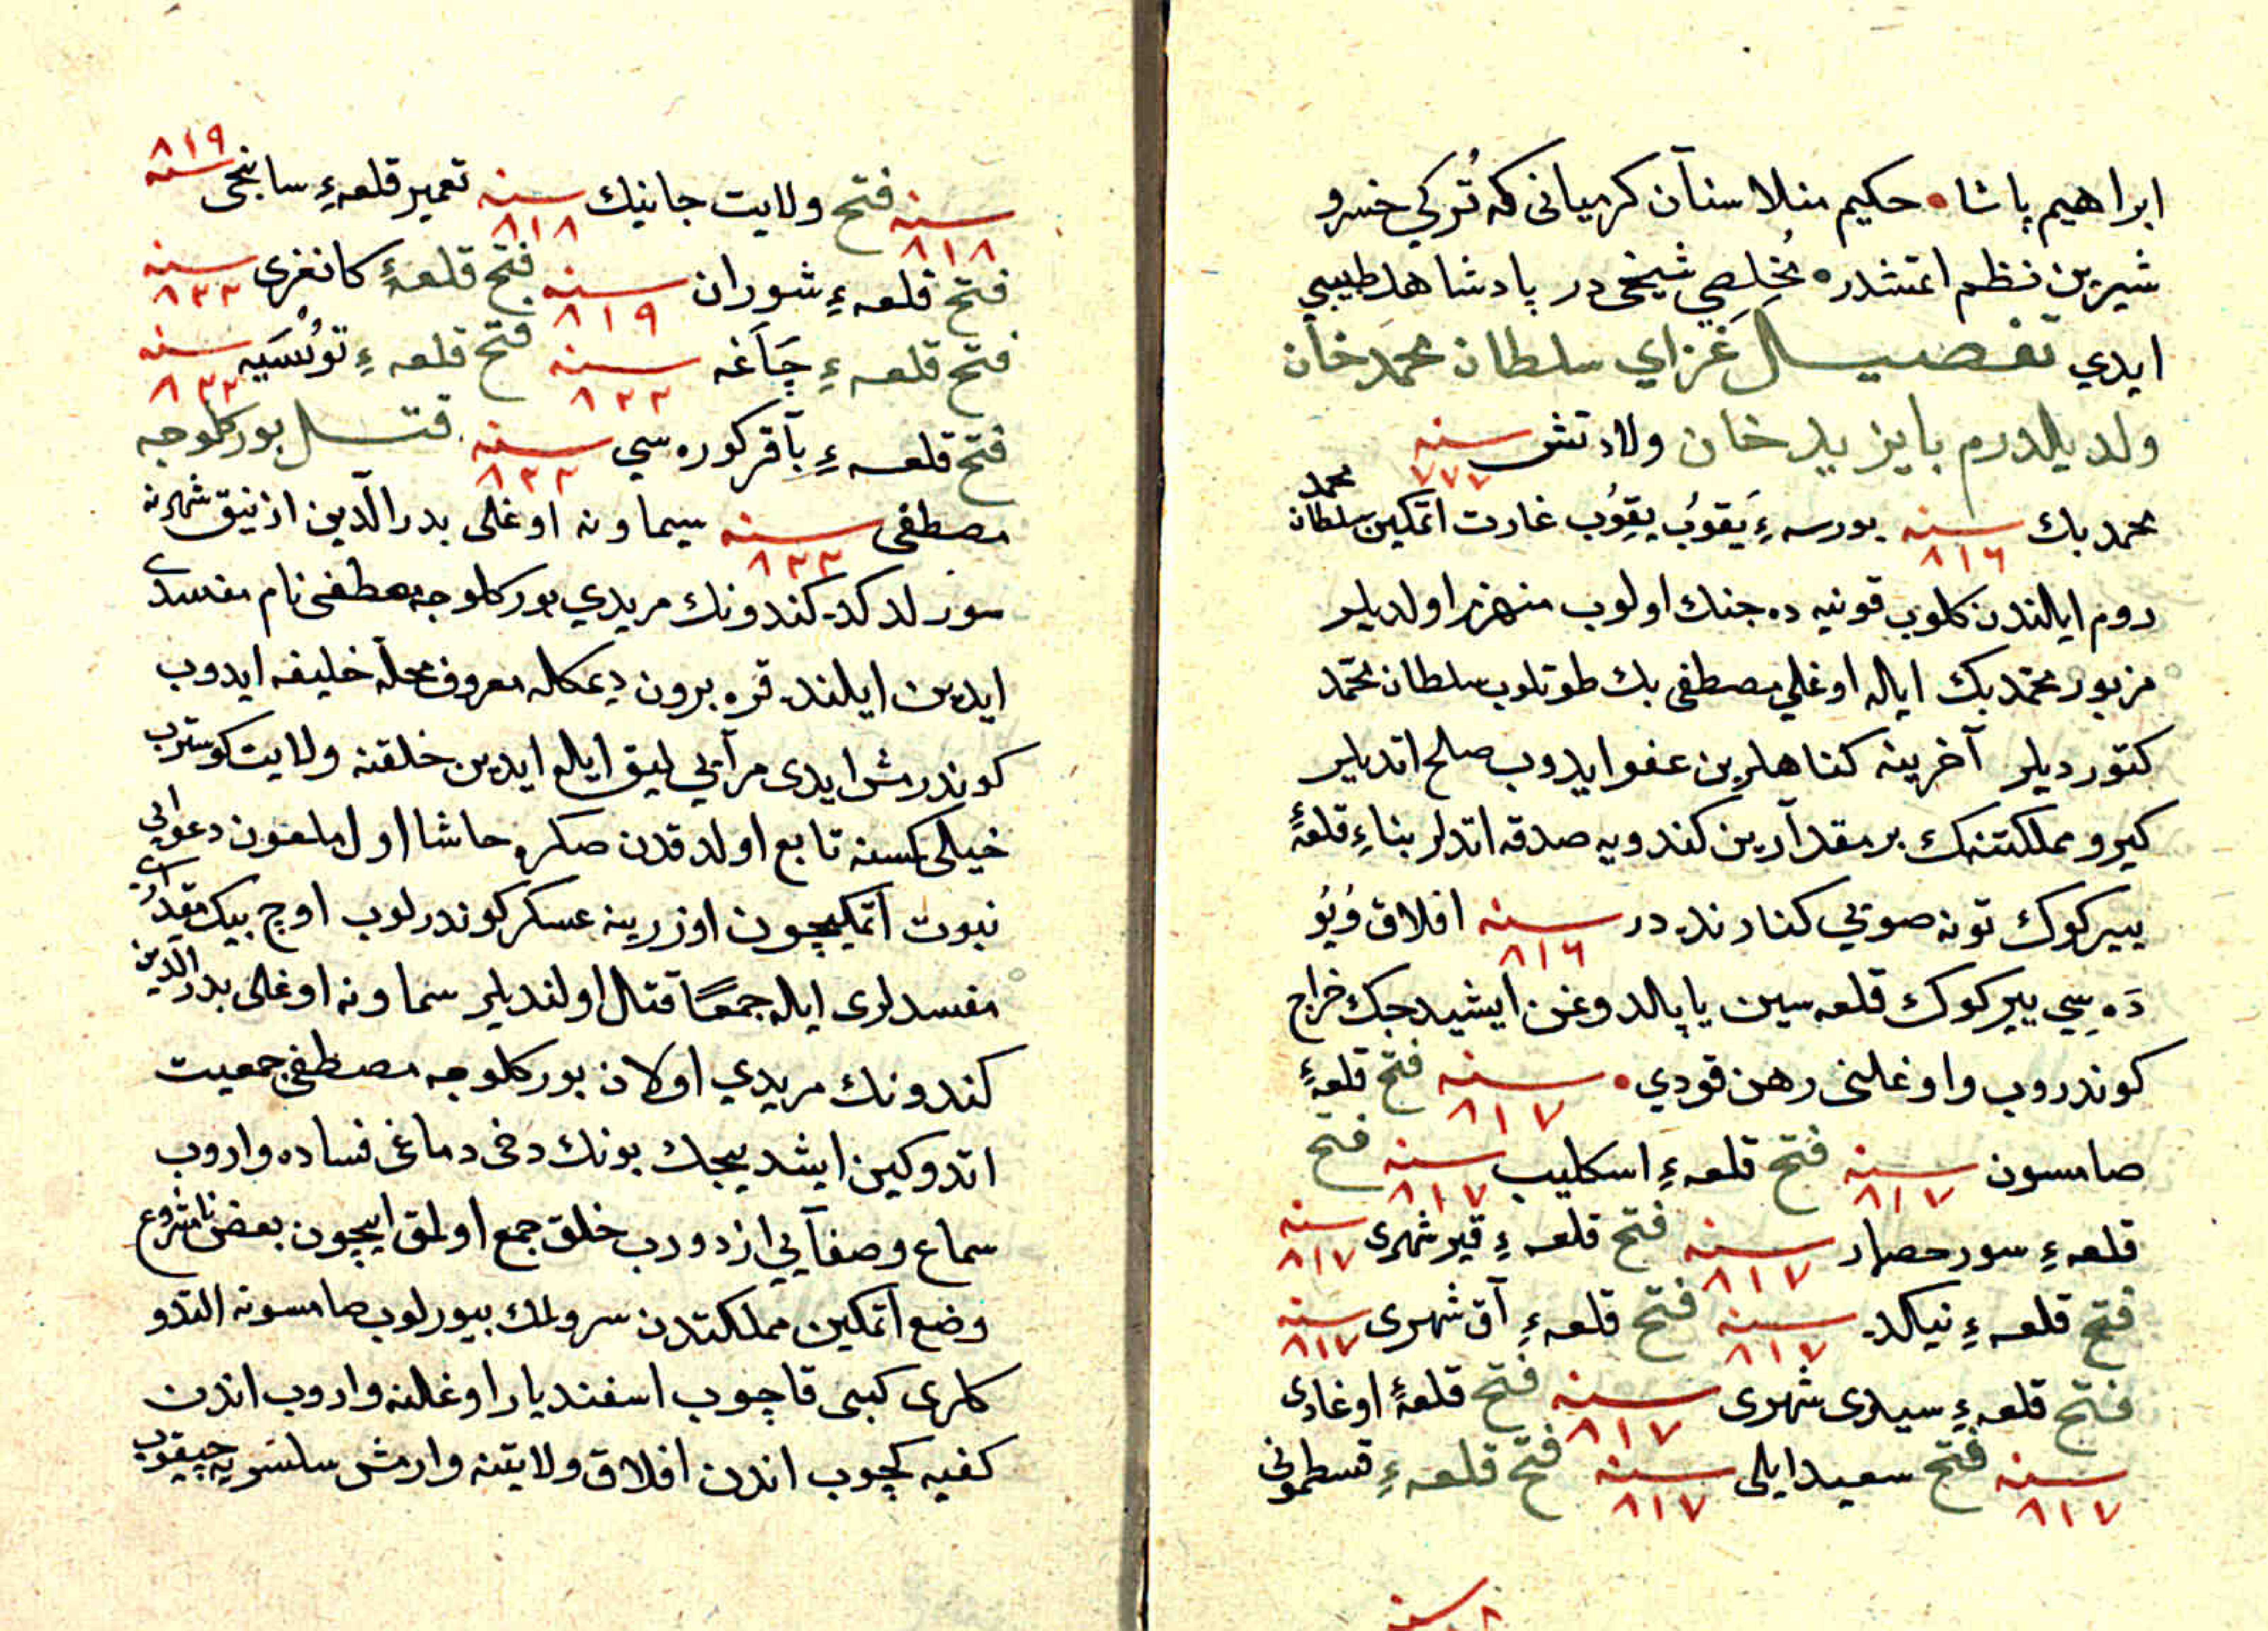 ابراهیم پاشا • حكیم منلا سنآن كرمیانی كه تُركي خسرو
شیرین نظم اتمشدر مُخلِصي شیخی در پادشاهله طبیبي
ایدي تفصیـل غَزاي سلطان محمد خان
ولد یلدرم بایزید خان ولادتش سنه ٧٧٧
محمد بك سنه ٨١٦ بورسه ءِ یَقوُب یِقوُب غارت اتمكین سلطان محمد
روم ایالندن كلوب قونیه ده جنك اولوب منهزم اولدیلر
مزبور محمد بك ایاله اوغلي مصطفی بك طوتلوب سلطان محمد
كتوردیلر آخرینه كناهلرین عفو ایدوب صلح اتدیلر
كیرو مملكتنك بر مقدآرین كندویه صدقه اتدلر بناءِ قلعهٔ
ییركوك تونه صویي كنارنده در سنه ٨١٦ افلاق وُیوُ
دَه سِي ییركوك قلعه سین یاپالدوغن ایشیدجك خراج
كوندروب واوغلنی رهن قودي • سنه ٨١٧ فتح قلعهٔ
صامسون سنه ٨١٧ فتح قلعهءِ اسكلیب سنه ٨١٧ فتح
قلعهءِ سورحصار سنه ٨١٧ فتح قلعهءِ قیرشهری سنه ٨١٧
فتح قلعهءِ نیكده سنه ٨١٧ فتح قلعهءِ آق شهری سنه ٨١٧
فتح قلعهءِ سیدی شهری سنه ٨١٧ فتح قلعهٔ اوغادی
سنه ٨١٧ فتح سعید ایلی سنه ٨١٧ فتح قلعهءِ قسطمونی
سنه
سنه ٨١٨ فتح ولایت جانیك سنه ٨١٨ تعمیر قلعهءِ سابنجی سنه ٨١٩
فتح قلعهءِ شوران سنه ٨١٩ فتح قلعهٔ كانغری سنه ٨٢٢
فتح قلعهءِ چَآغه سنه ٨٢٢ فتح قلعهءِ توُسَیه سنه ٨٢٢
فتح قلعهءِ بآقر كوره سي سنه ٨٢٢ قتـل بوركلوجه
مصطفی سنه ٨٢٢ سیماونه اوغلی بدر الدّین ازنیق شهرنه
سورلدكده كندونك مریدي بوركلوجه مصطفی نام مفسدی
ایدین ایلنده قره برون دیمكاله معروف محلّه خلیفه ایدوب
كوندرمش ایدی مرآیي لیق ایاله ایدین خلقنه ولایت كوستروب
خیلی كسنه تابع اولدقدن صكره حاشا اول ملعون دعوايِ
نبوت اتمكیچون اوزرینه عسكر كوندرلوب اوج بیك مقدارُی
مفسدلری ایاله جمعًا قتال اولندیلر سماونه اوغلی بدر الّدین
كندونك مریدي اولان بوركلوجه مصطفی جمعیت
اتدوكین ایشدیجك بونك دخی دماغی فساده واروب
سماع وصفآیي ازدودب خلق جمع اولمق ایچون بعض نامشروع
وضع اتمكین مملكتدن سرولمك بیورلوب صامسونه التدو
كلری كبی قاچوب اسفندیار اوغلنه واروب اندن
كفیه كچوب اندن افلاق ولایتنه وارمش سلسریه چیقوب